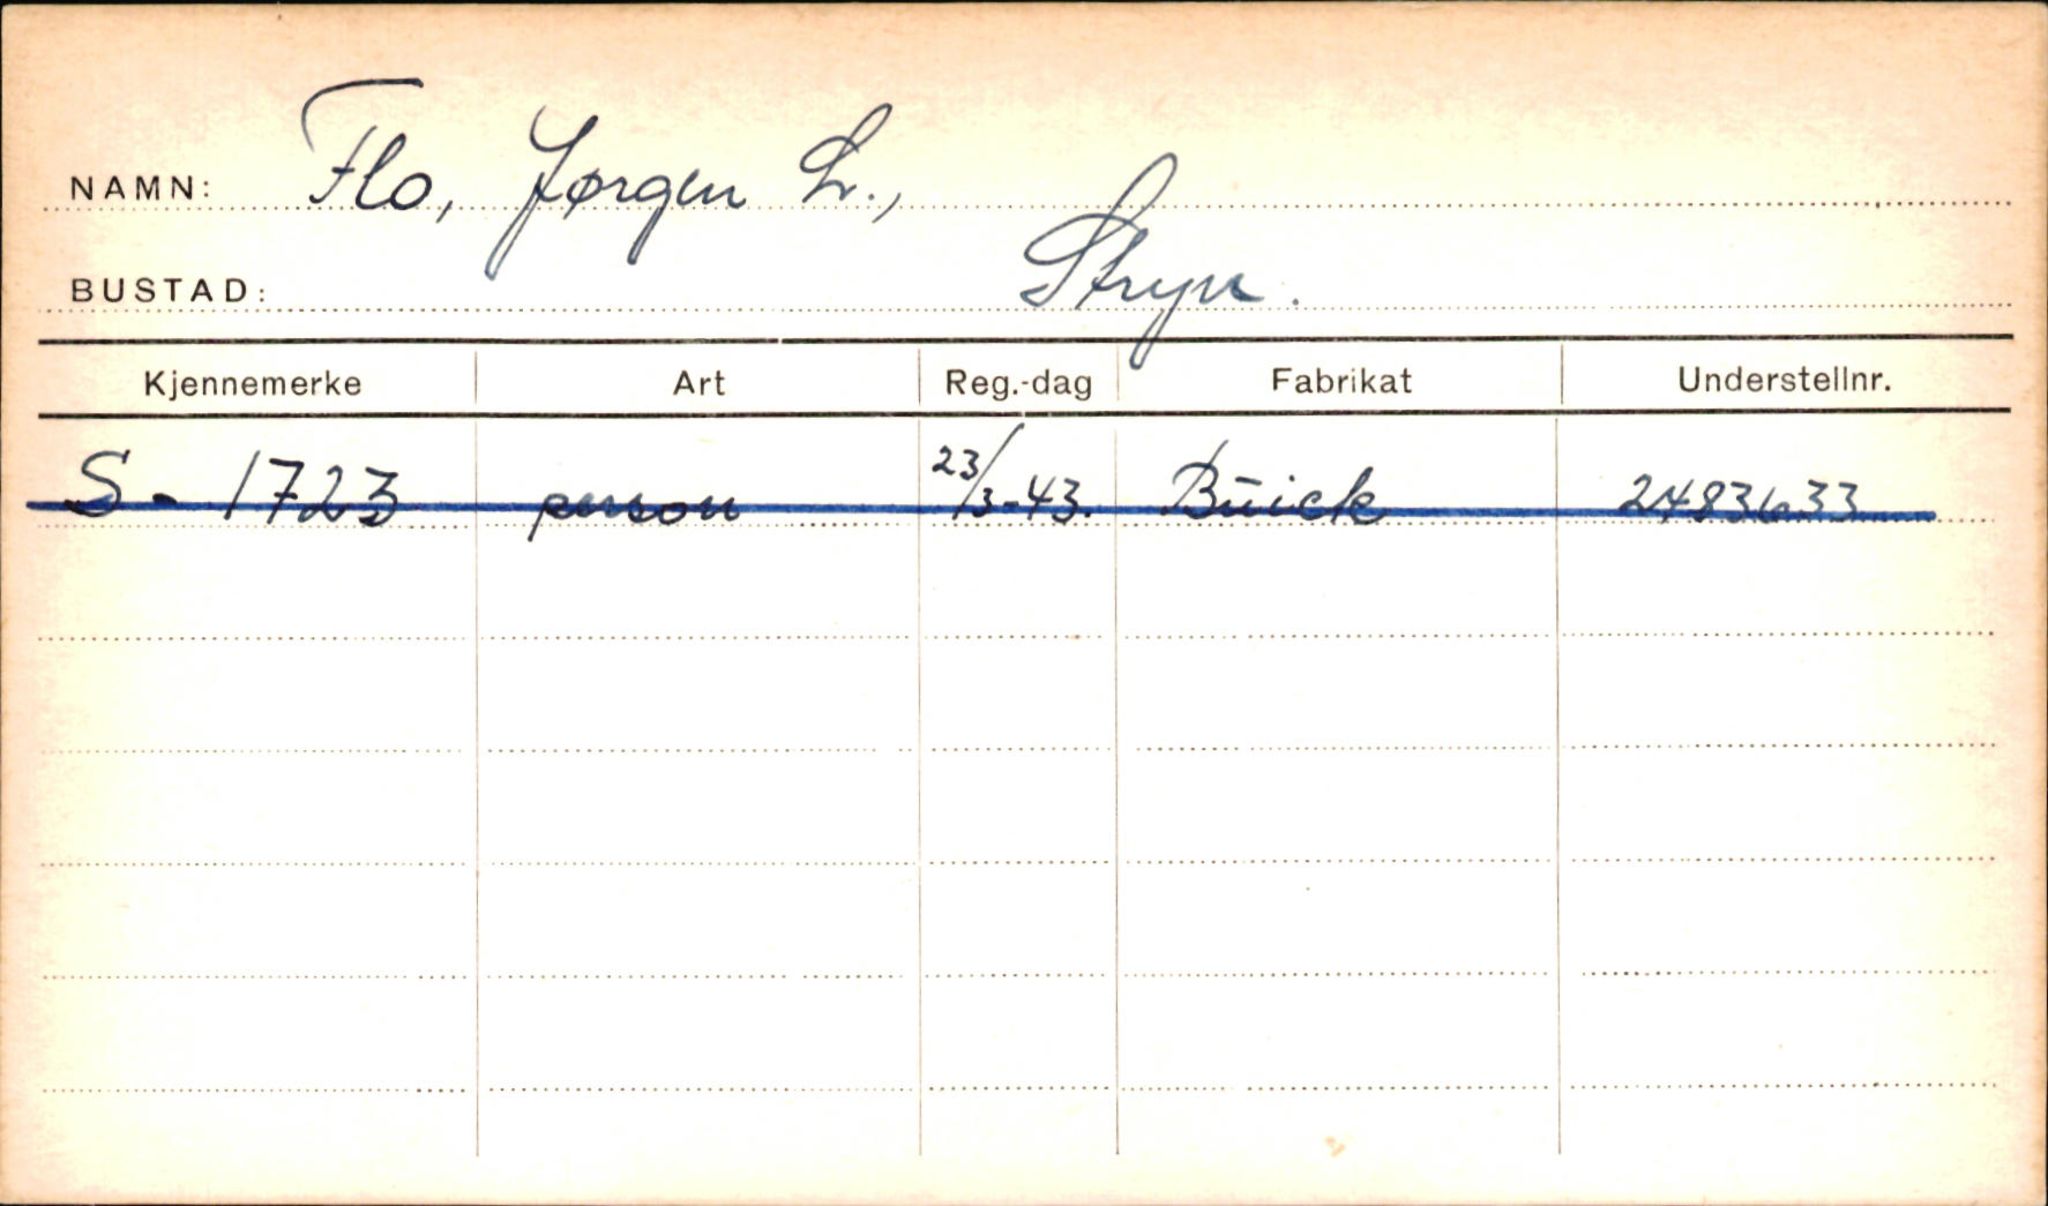 NAMN: Flo, Jørgen L.,
BUSTAD: Stryn.
Kjennemerke Art Reg.-dag Fabrikat Understellnr.
S- 1723 person 23/3-43. Buick 2483633